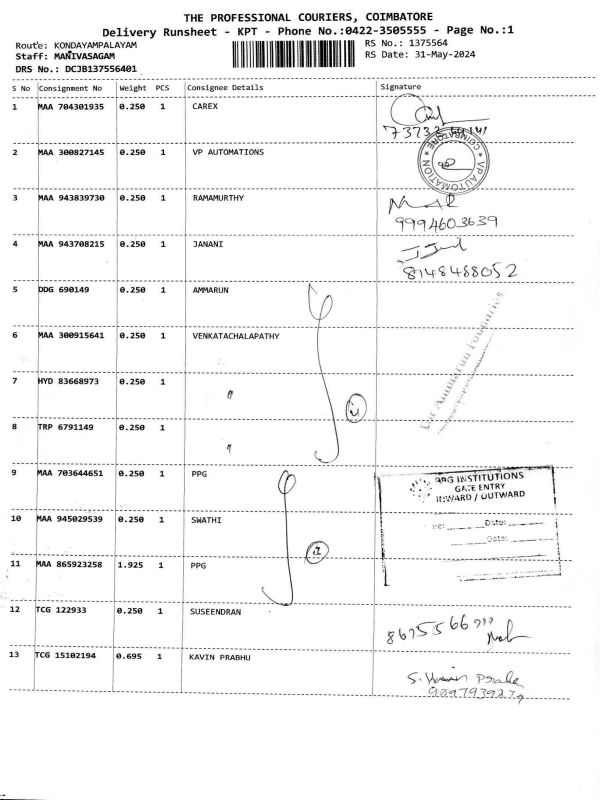 THE PROFESSIONAL COURIERS, COIMBATORE
Delivery Runsheet - KPT - Phone No.:0422-3505555 - Page No.:1
Route: KONDAYAMPALAYAM RS No.: 1375564
Staff: MANIVASAGAM RS Date: 31-May-2024
DRS No.: DCJB137556401
S No Consignment No Weight PCS Consignee Details Signature
1 MAA 704301935 0.250 1 CAREX
2 MAA 300827145 0.250 1 VP AUTOMATIONS
VP AUTOMATION * COIMBATORE *
3 MAA 943839730 0.250 1 RAMAMURTHY
9994603639
4 MAA 943708215 0.250 1 JANANI
8148488052
5 DDG 690149 0.250 1 AMMARUN
6 MAA 300915641 0.250 1 VENKATACHALAPATHY
7 HYD 83668973 0.250 1 "
8 TRP 6791149 0.250 1 "
9 MAA 703644651 0.250 1 PPG
PPG INSTITUTIONS
GATE ENTRY
INWARD / OUTWARD
Date:
Date:
10 MAA 945029539 0.250 1 SWATHI
11 MAA 865923258 1.925 1 PPG
12 TCG 122933 0.250 1 SUSEENDRAN
13 TCG 15102194 0.695 1 KAVIN PRABHU